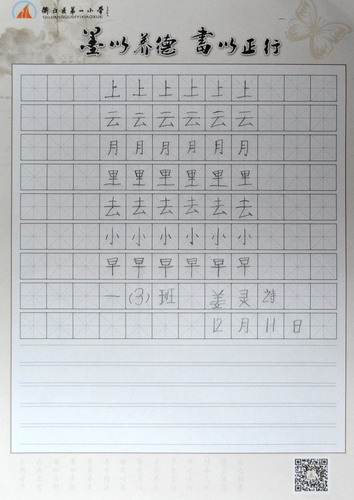 衢江区第一小学
墨以养德 书以正行
上上上上上上
云云云云云云
月月月月月月
里里里里里里
去去去去去去
小小小小小小
早早早早早早
一(3)班 姜灵
12月11日